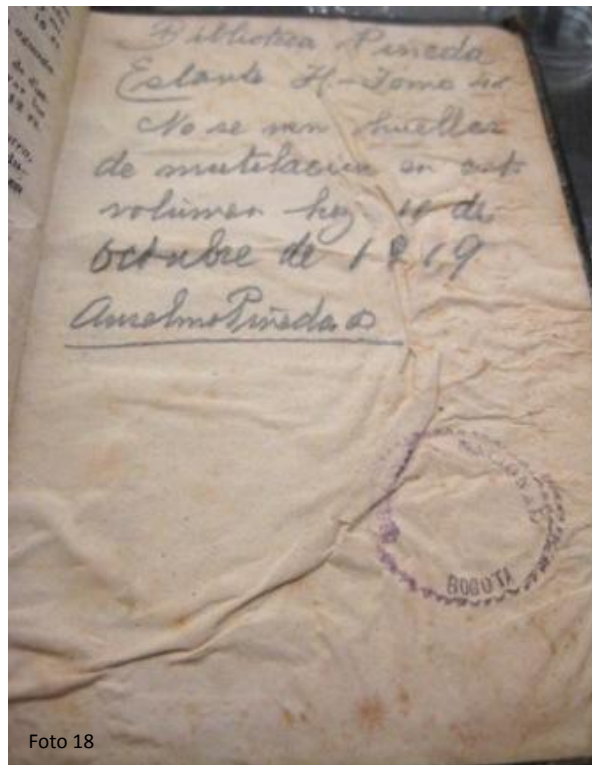 Biblioteca Pineda
Estante H - Tomo
No se ven huellas
de mutilacion en est
volúmen hoy de
octubre de 1919
Anselmo Pineda
NACIONAL
BOGOTA
Foto 18